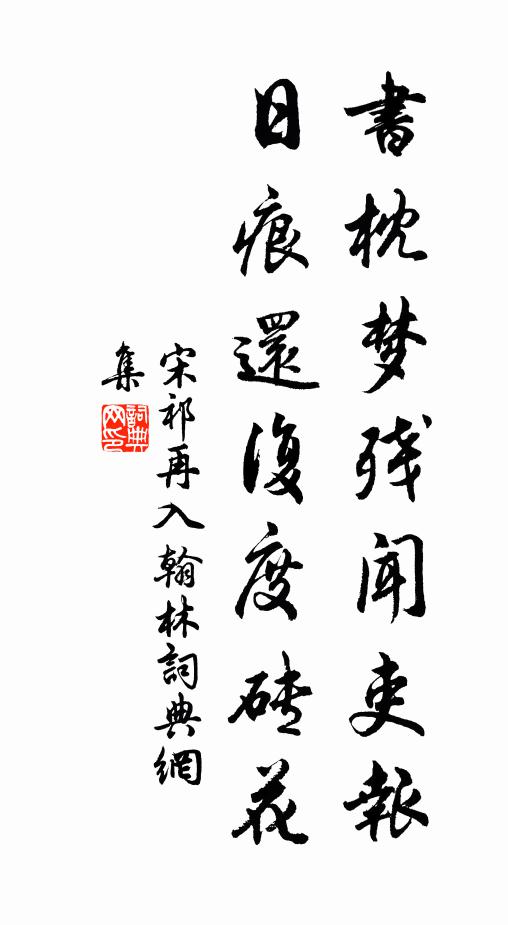 書枕梦残闻吏報
日痕還復度磚花
宋祁再入翰林詞典網
集
詞典网印